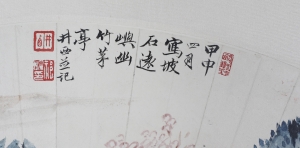 甲申
四月
寫坡
石遠
嶼幽
竹茅
亭
井西並记